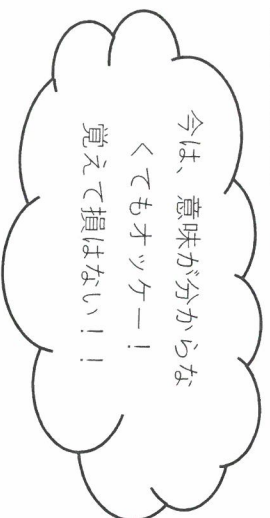 今は、意味が分からな
くてもオッケー！
覚えて損はない！！